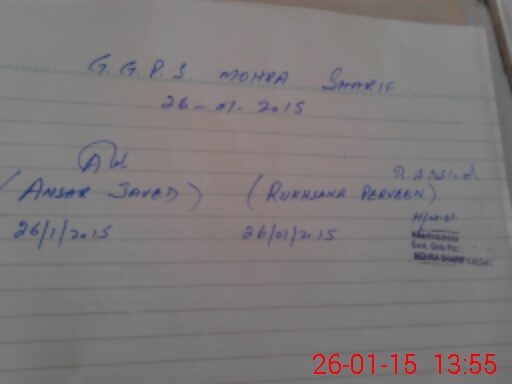 G.G.P.S MOHRA SHARIF
26-01-2015
(ANSAR JAVED) (RUKHSANA PERVEEN)
26/1/2015 26/01/2015
H/M
Headmistress
Govt. Girls Pri.
MOHRA SHARIF
26-01-15 13:55